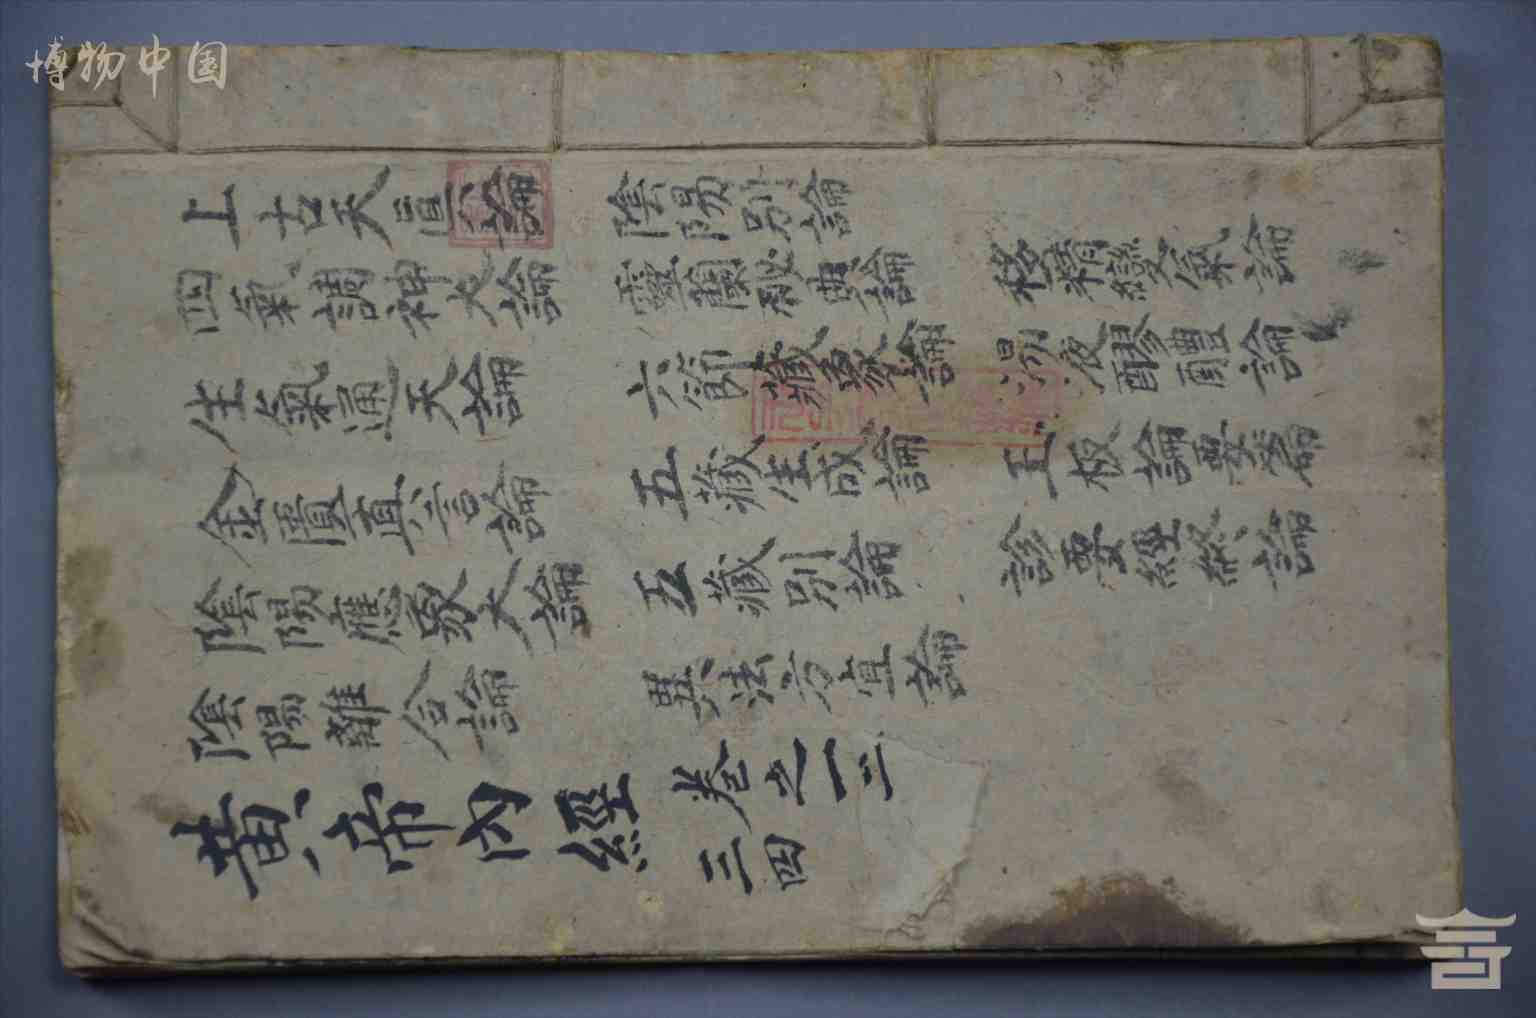 博物中国
上古天真論
四氣調神大論
生氣通天論
金匱真言論
陰陽應象大論
陰陽離合論
陰陽別論
靈蘭秘典論
六節藏象論
五藏生成論
五藏別論
異法方宜論
移精變氣論
湯液醪醴論
玉板論要論
診要經終論
黄帝内經 卷之一二三四